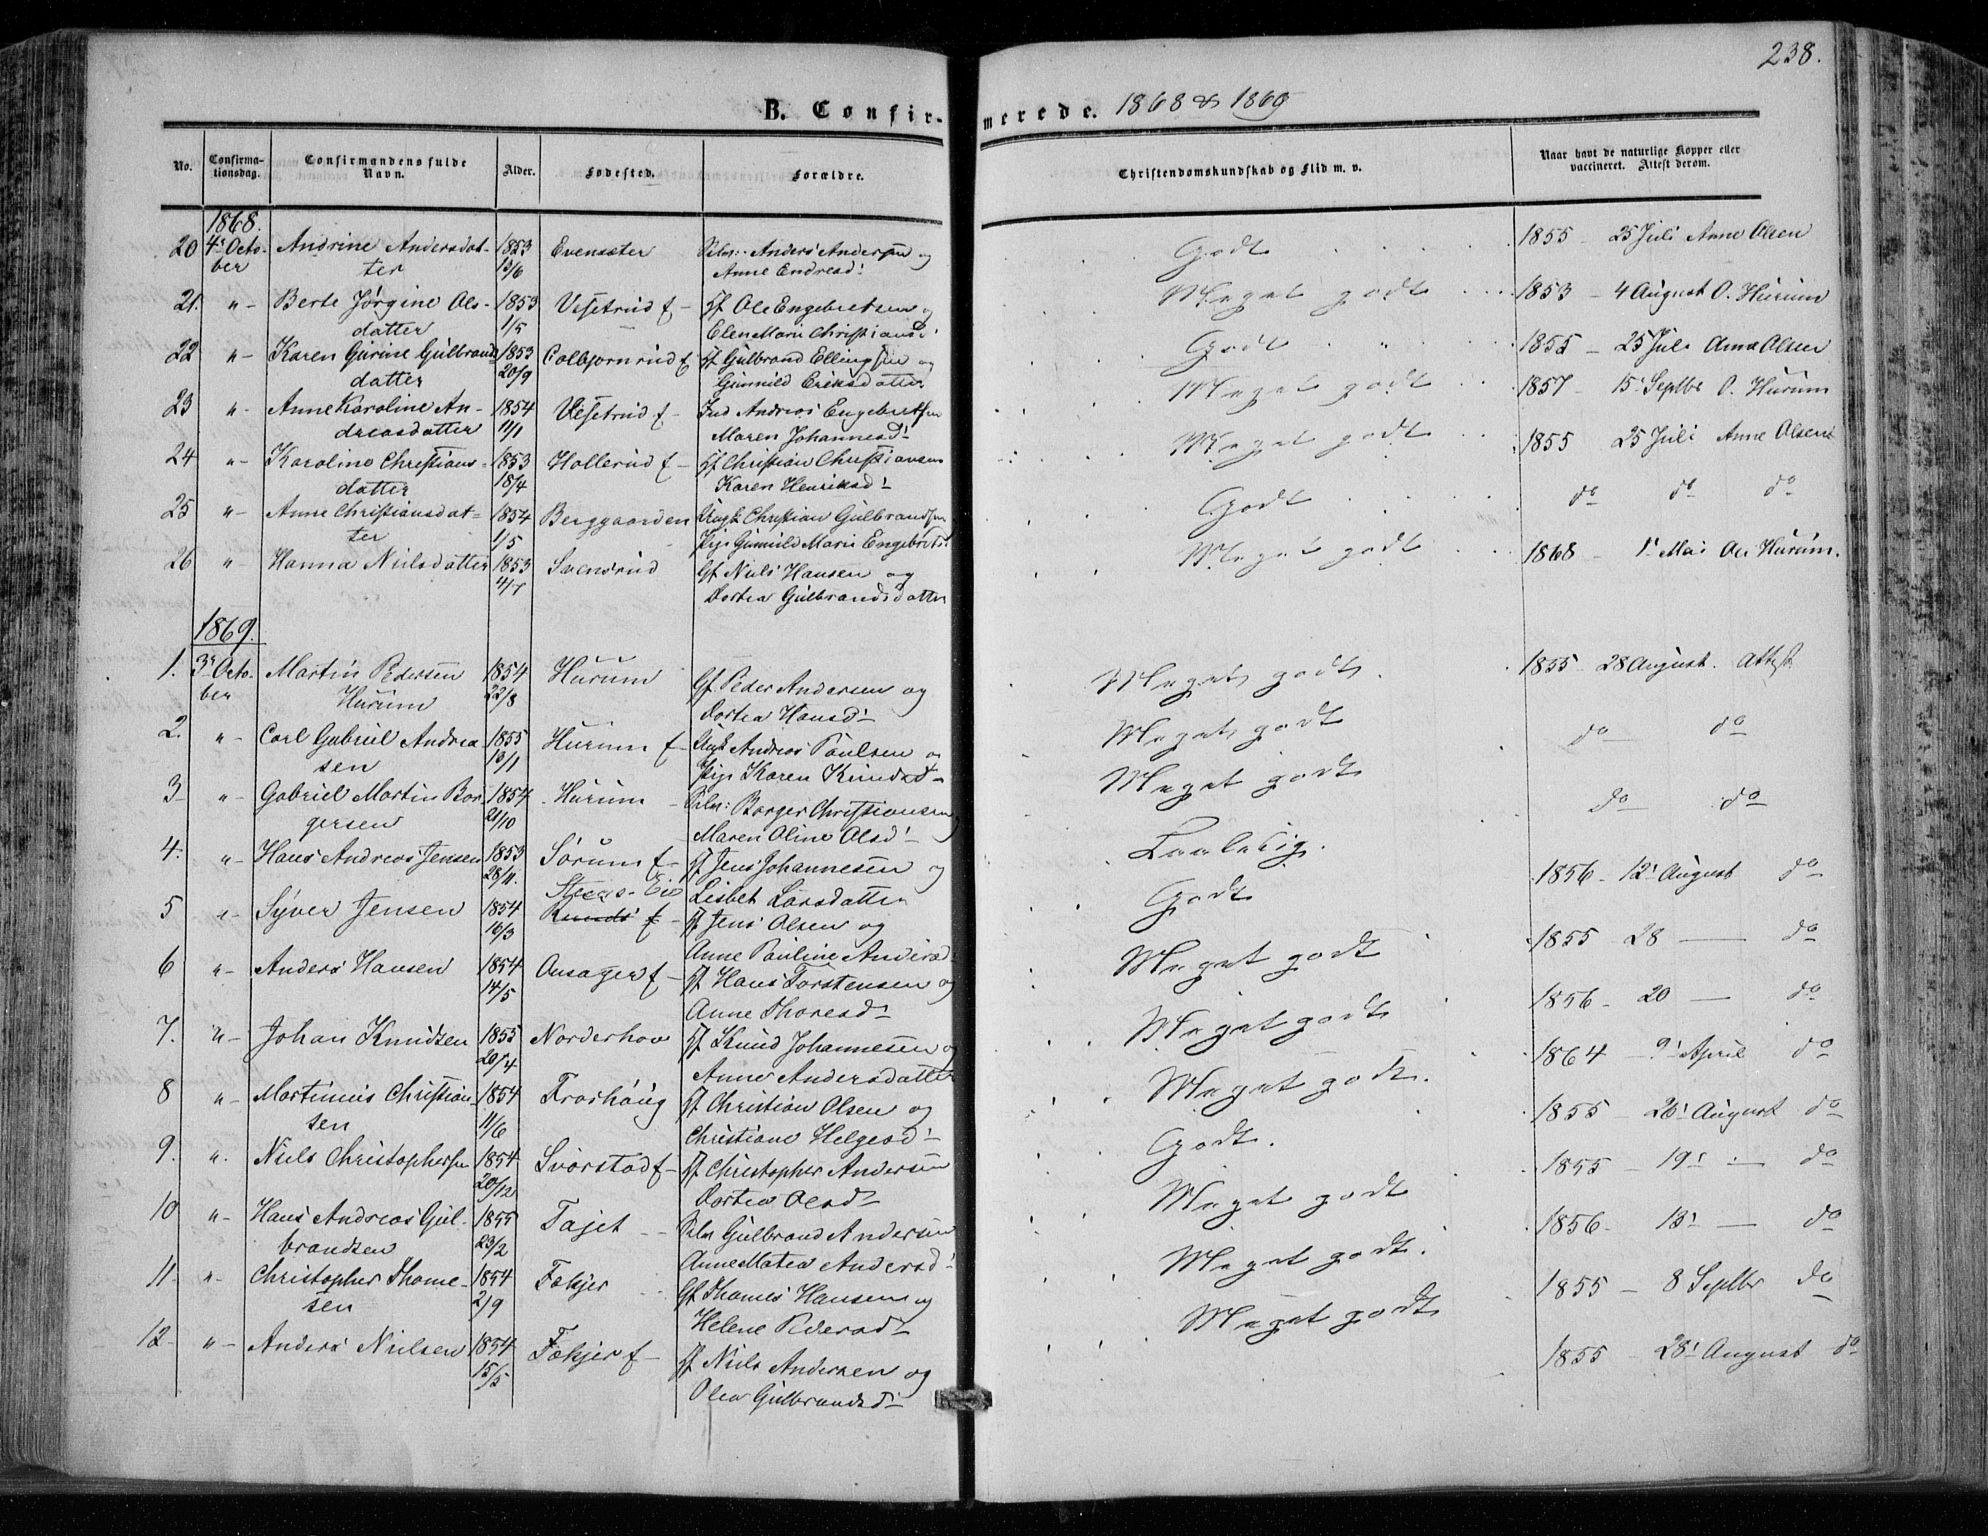 238.
B. Confirmerede. 1868 & 1869
No. Confirmationsdag. Confirmandens fulde Navn. Alder. Fødested. Forældre. Christendomskundskab og Flid m. v. Naar havt de naturlige Kopper eller vaccineret. Attest derom.
1868.
20 4' Octo- Andrine Andersdat- 1853 Evensæter Selv: Anders Andersen og Godt 1855 - 25 Juli Anne Olsen
ber ter 13/6 Anne Endresd:
21. " - Berte Jørgine Ols- 1853 Vesetrud f - Hf Ole Engebretsen og Meget godt 1853 - 4 August O. Hurum
datter 1/5 Elen Marie Christiansd:
22 " - Karen Gurine Gulbrands 1853 Colbjørnrud f Hf Gulbrand Ellingsen og Godt 1855 - 25 Juli Anne Olsen
datter 20/9 Gunnild Eriksdatter
23 " - Anne Karoline An- 1854 Vesetrud f - Ind Andreas Engebretsen Meget godt 1857 - 15 Septbr O. Hurum
dreasdatter 11/1 Maren Johannesd:
24 " - Karoline Christians- 1853 Hollerud f - Hf Christian Christiansen Meget godt 1855 25 Juli Anne Olsen
datter 18/4 Karen Henriksd:
25 " - Anne Christiansdat- 1854 Berggaarden Ungk Christian Gulbrandsen Godt do do do
ter 1/5 Pige Gunnild Marie Engebretsd:
26 " - Hanna Nielsdatter 1853 Svensrud Gf Niels Hansen og Meget godt 1868 - 1' Mai Ole Hurum.
4/7 Dortea Gulbrandsdatter
1869.
1. 3' Octo- Martin Pedersen 1854 Hurum Gf Peder Andersen og Meget godt 1855 - 28 August. Attest
ber Hurum 22/8 Dortea Hansd:
2. " - Carl Gabriel Andrea 1855 Hurum f - Ungk Andreas Paulsen og Meget godt do do
sen 13/1 Pige Karen Knudsd-
3 - " - Gabriel Martin Bor 1854 Hurum - Selv: Borger Christiansen og Meget godt do do
gersen 21/10 Maren Oline Olsd:
4. " - Hans Andreas Jensen 1853 Sørum f - Hf Jens Johannesen og Taalelig. 1856 - 12' August do
28/11. Lisbet Larsdatter
5 " - Syver Jensen 1854 Steens-Eie Hf Jens Olsen og Godt 1855 28 — do
16/3 Anne Pauline Andersd:
6 " - Anders Hansen 1854 Onsager f - Hf Hans Torstensen og Meget godt 1856 - 20 — do
14/5 Anne Thoresd:
7. " - Johan Knudsen 1855 Norderhov Hf Knud Johannesen og Meget godt 1864 - 9' April do
20/4 Anne Andersdatter
8 " - Martinius Christian- 1854 Frøshaug Hf Christian Olsen og Meget godt. 1855 - 26' August do
sen 11/6 Christiane Helgesd:
9. " Niels Christophersen 1854 Svarstad f - Hf Christopher Andersen Godt. 1855 - 19' — do
20/12 Dortea Olsd-
10 " - Hans Andreas Gul- 1855 Fajet - Selv Gulbrand Andersen Meget godt 1856 - 13' — do
brandsen 23/2 Anne Matea Andersd:
11 - " - Christopher Thome- 1854 Fekjer Gf Thomes Hansen og Meget godt. 1855 - 8 Septbr do
sen 2/9 Helene Pedersd-
12 - " - Anders Nielsen 1854 Fekjer f - Hf Niels Andersen og Meget godt 1855 - 28' August do
15/5 Olea Gulbrandsd: